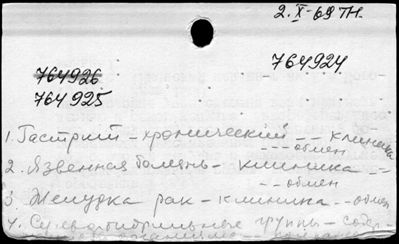 2.X-69 ТН.
764926
764924
764925
1. Гастрит - хронический -- клиника
-- обмен
2. Язвенная болезнь - клиника --
-- обмен
3. Желудка рак - клиника -- обмен
4. Сульфгидрильные группы - содер.